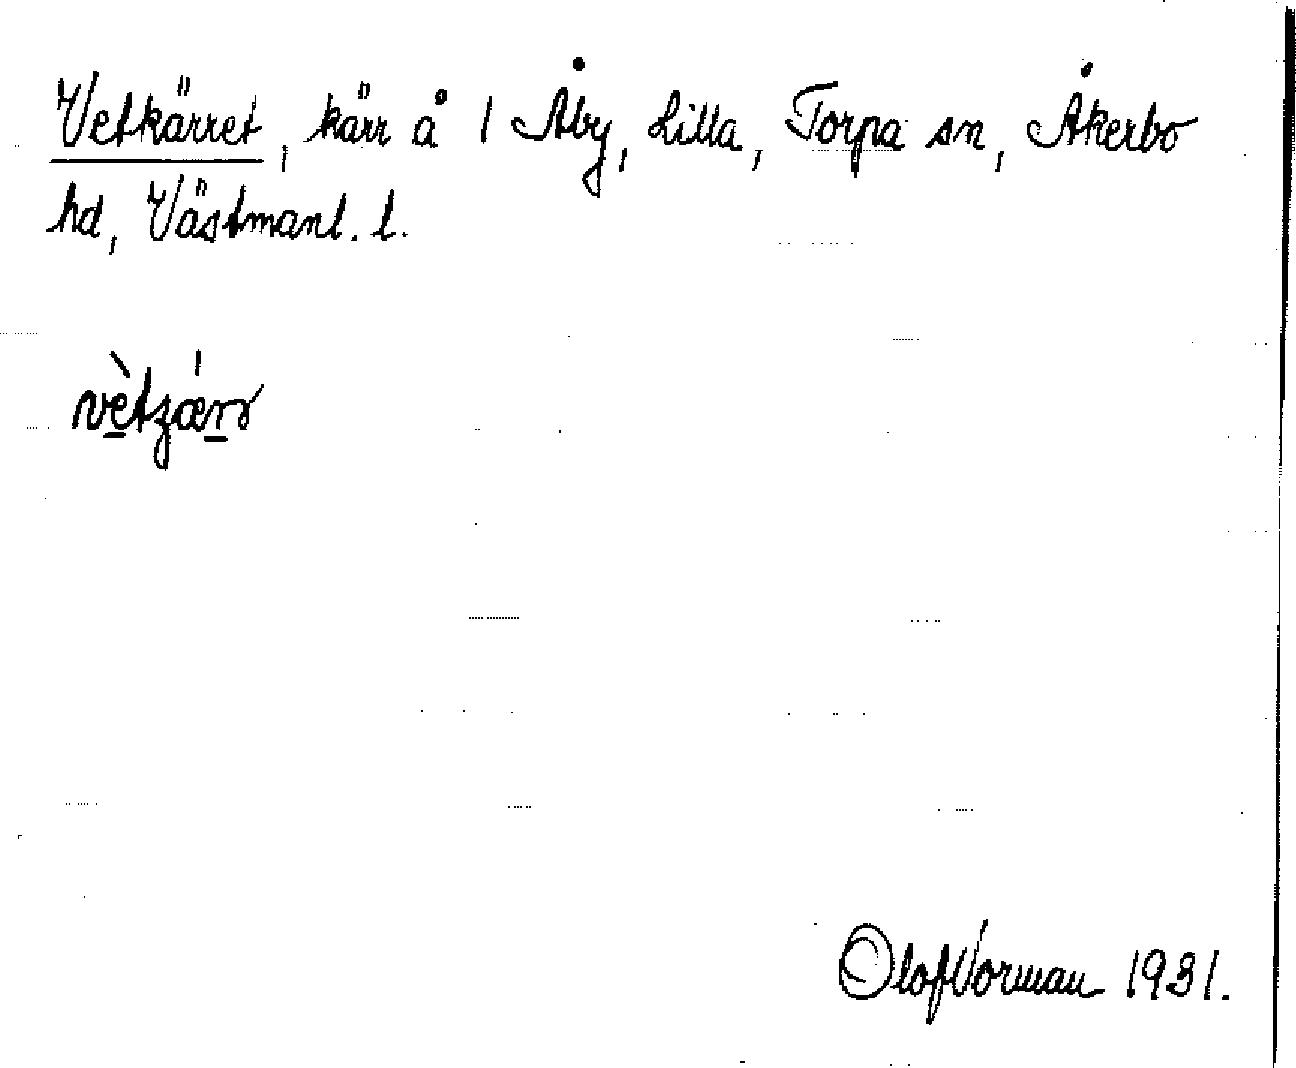 Vetkärret, kärr å 1 Åby, Lilla, Torpa sn, Åkerbo
hd, Västmanl. l.
vètzǽrr
Olof Vorman 1931.